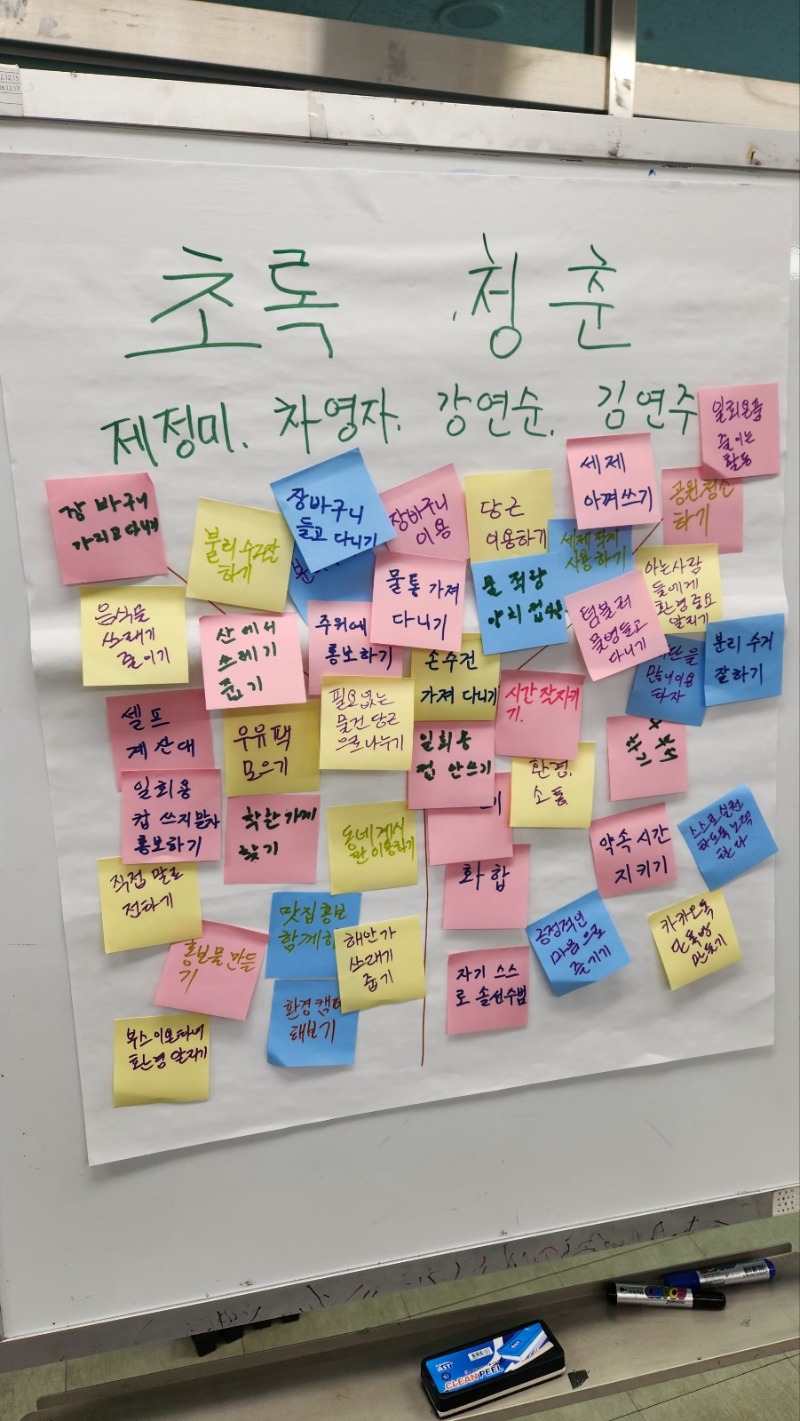 초록 청춘
제정미. 차영자. 강연순. 김연주
일회용품
줄이는
활동
장바구니
가지고 다니기
분리수거잘
하기
장바구니
들고 다니기
장바구니
이용
당근
이용하기
세제
아껴쓰기
공원청소
하기
음식물
쓰래기
줄이기
산에서
쓰레기
줍기
주위에
홍보하기
물통 가져
다니기
물 적량
세제 적게
사용하기
텀블러
물병들고
다니기
아는사람
들에게
환경중요
알리기
분리 수거
잘하기
셀프
계산대
우유팩
모으기
필요없는
물건 당근
으로 나누기
손수건
가져 다니기
시간 잘지키
기.
일회용
컵 안쓰기
환경.
소통
일회용
컵 쓰지말자
홍보하기
착한가게
찾기
동네게시
판 이용하기
화합
약속 시간
지키기
스스로 실천
하도록 노력
한다
직접 말로
전하기
홍보물 만들
기
맛집홍보
함께하
해안가
쓰래기
줍기
긍정적인
마음으로
즐기기
카카오톡
단톡방
만들기
환경캠
해보기
자기 스스
로 솔선수범
부스이용하여
환경 알리기
CLEANPEET